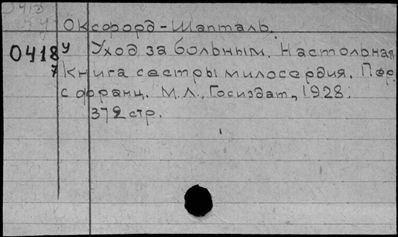 Оксфорд-Шапталь.
0418 У Уход за больным. Настольная
7 книга сестры милосердия. Пер.
с франц. М.Л., Госиздат, 1928.
372 стр.